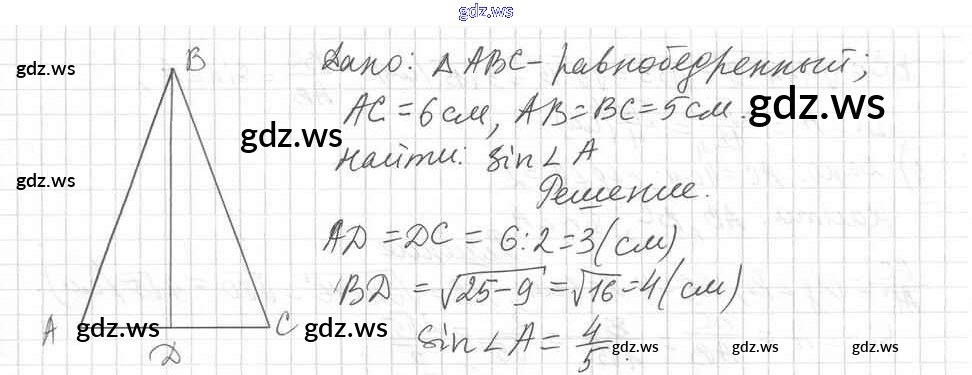 gdz.ws
B
gdz.ws
Дано: △ ABC - равнобедренный;
AC = 6 см, AB = BC = 5 см.
gdz.ws
gdz.ws
Найти: sin ∠ A
gdz.ws
Решение.
AD = DC = 6 : 2 = 3 (см)
BD = √25-9 = √16 = 4 (см)
A gdz.ws C gdz.ws
D
sin ∠ A = 4/5.
gdz.ws gdz.ws gdz.ws